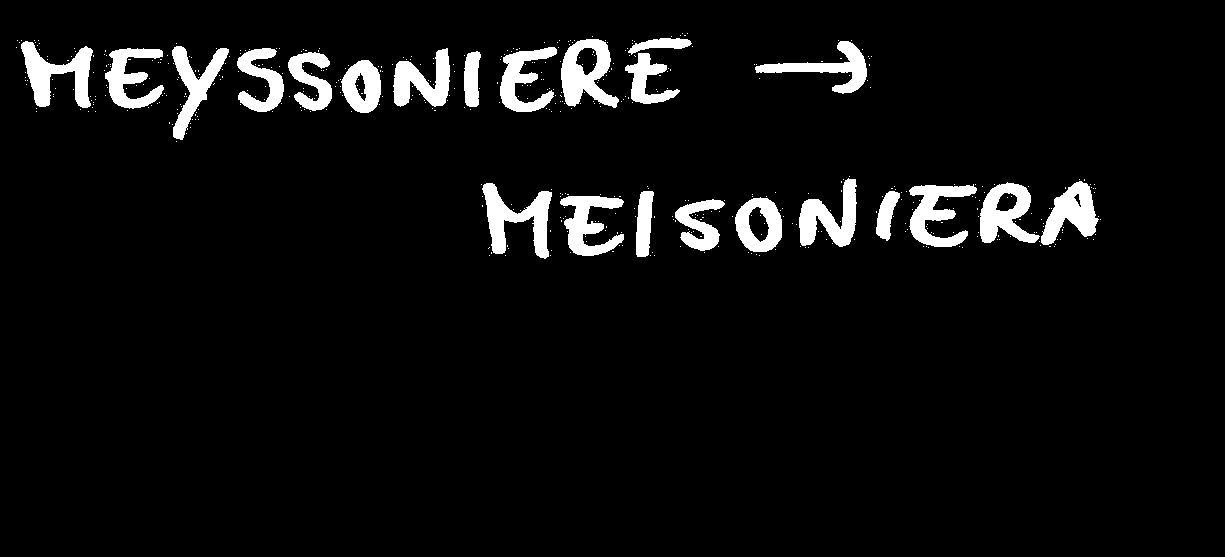 MEYSSONIERE →
MEISONIERA